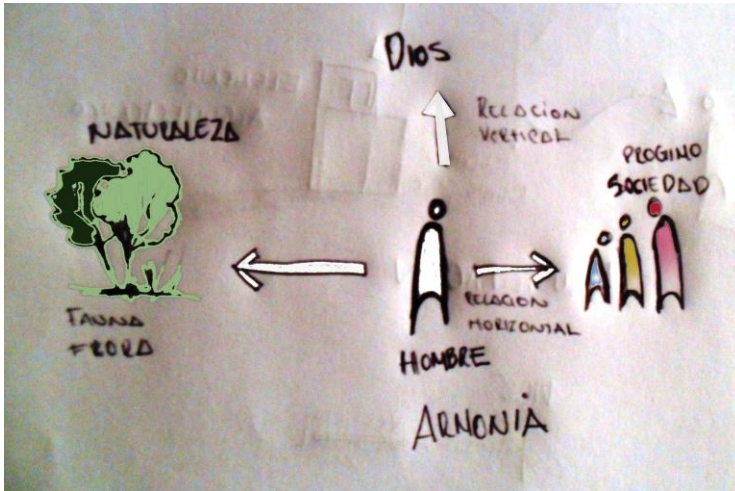 Dios
RELACION
VERTICAL
NATURALEZA
PROGIMO
SOCIEDAD
FAUNA
FRORA
RELACION
HORIZONTAL
HOMBRE
ARMONIA